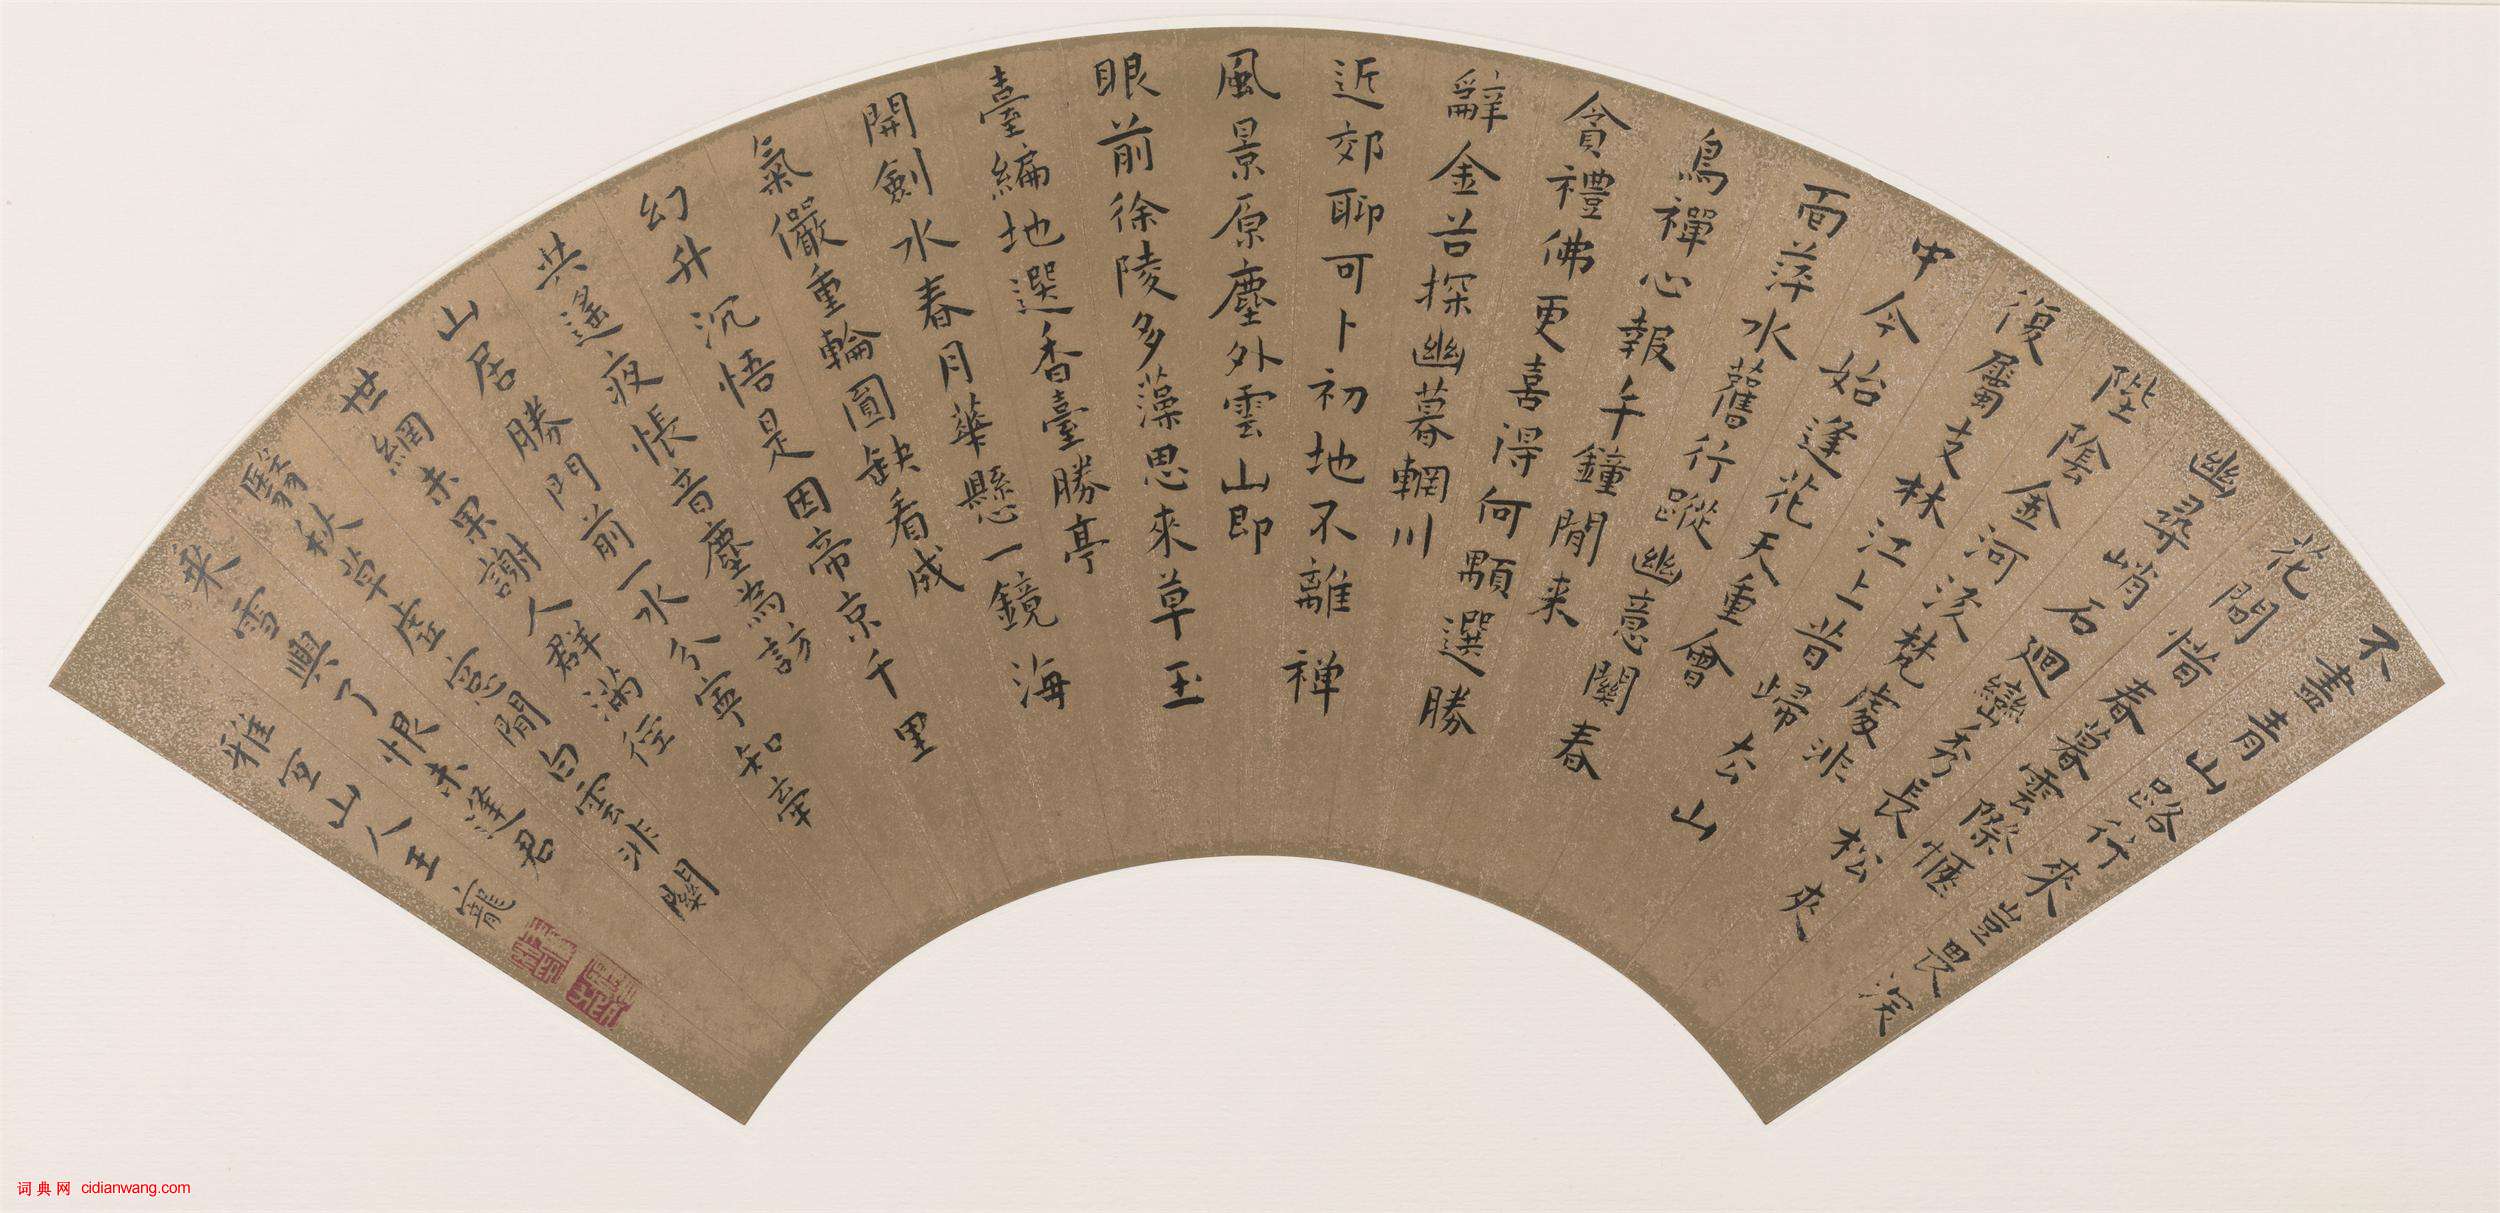 不盡青山路行來豈畏深
花間惜春暮雲際愜
幽尋峭石廻巒秀長松夾
陛陰金河流梵處非
復屬支林江上昔歸去山
中今始逢花天重會
面萍水舊行蹤幽意關春
鳥禪心報午鐘閒来
貪禮佛更喜得何顒選勝
辭金谷探幽暮輞川
近郊聊可卜初地不離禅
風景原塵外雲山即
眼前徐陵多藻思來草玉
臺編地選香臺勝亭
開劍水春月華懸一鏡海
氣儼重輪圓缺看成
幻升沉悟是因帝京千里
共遙夜悵音塵為訪
山居勝門前一水分寧知牽
世網未果謝人群滿徑
翳秋草虛窓閒白雲非關
乘雪興了恨未逢君
雅宜山人王寵
词典网 cidianwang.com